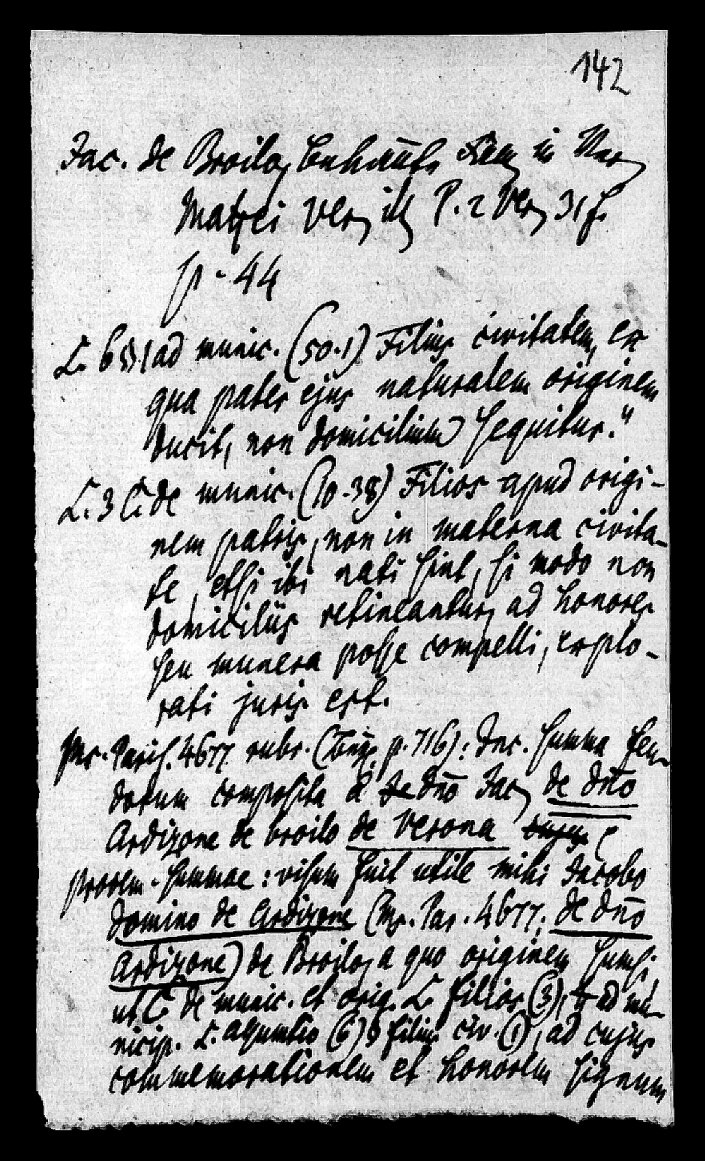 142
Jac. de Broilo,
Maffei Ver. ill. P. 2 Ver. 31 f.
p. 44
L. 6 §1 ad munic. (50.1) Filius civitatem, ex
qua pater ejus naturalem originem
ducit, non domicilium sequitur."
L. 3 C. de munic. (10.38) Filios apud origi-
nem patris, non in materna civita-
te, etsi ibi nati sint, si modo non
domiciliis retineantur, ad honores
seu munera posse compelli, explo-
rati juris est.
Ms. Paris. 4677 rubr. p. 716): Inc. summa feu-
dorum composita a de dño Jac. de dño
Ardizone de broilo de Verona
prooem. summae: visum fuit utile mihi Jacobo
domino de Ardizone (Ms. Par. 4677: de dño
Ardizone) de Broilo, a quo originem sumsi,
ut C. de munic. et orig. L. filios (3), ad mu-
nicip. L. assumtio (6) § filius civ. (1), ad cujus
commemorationem et honorem signum